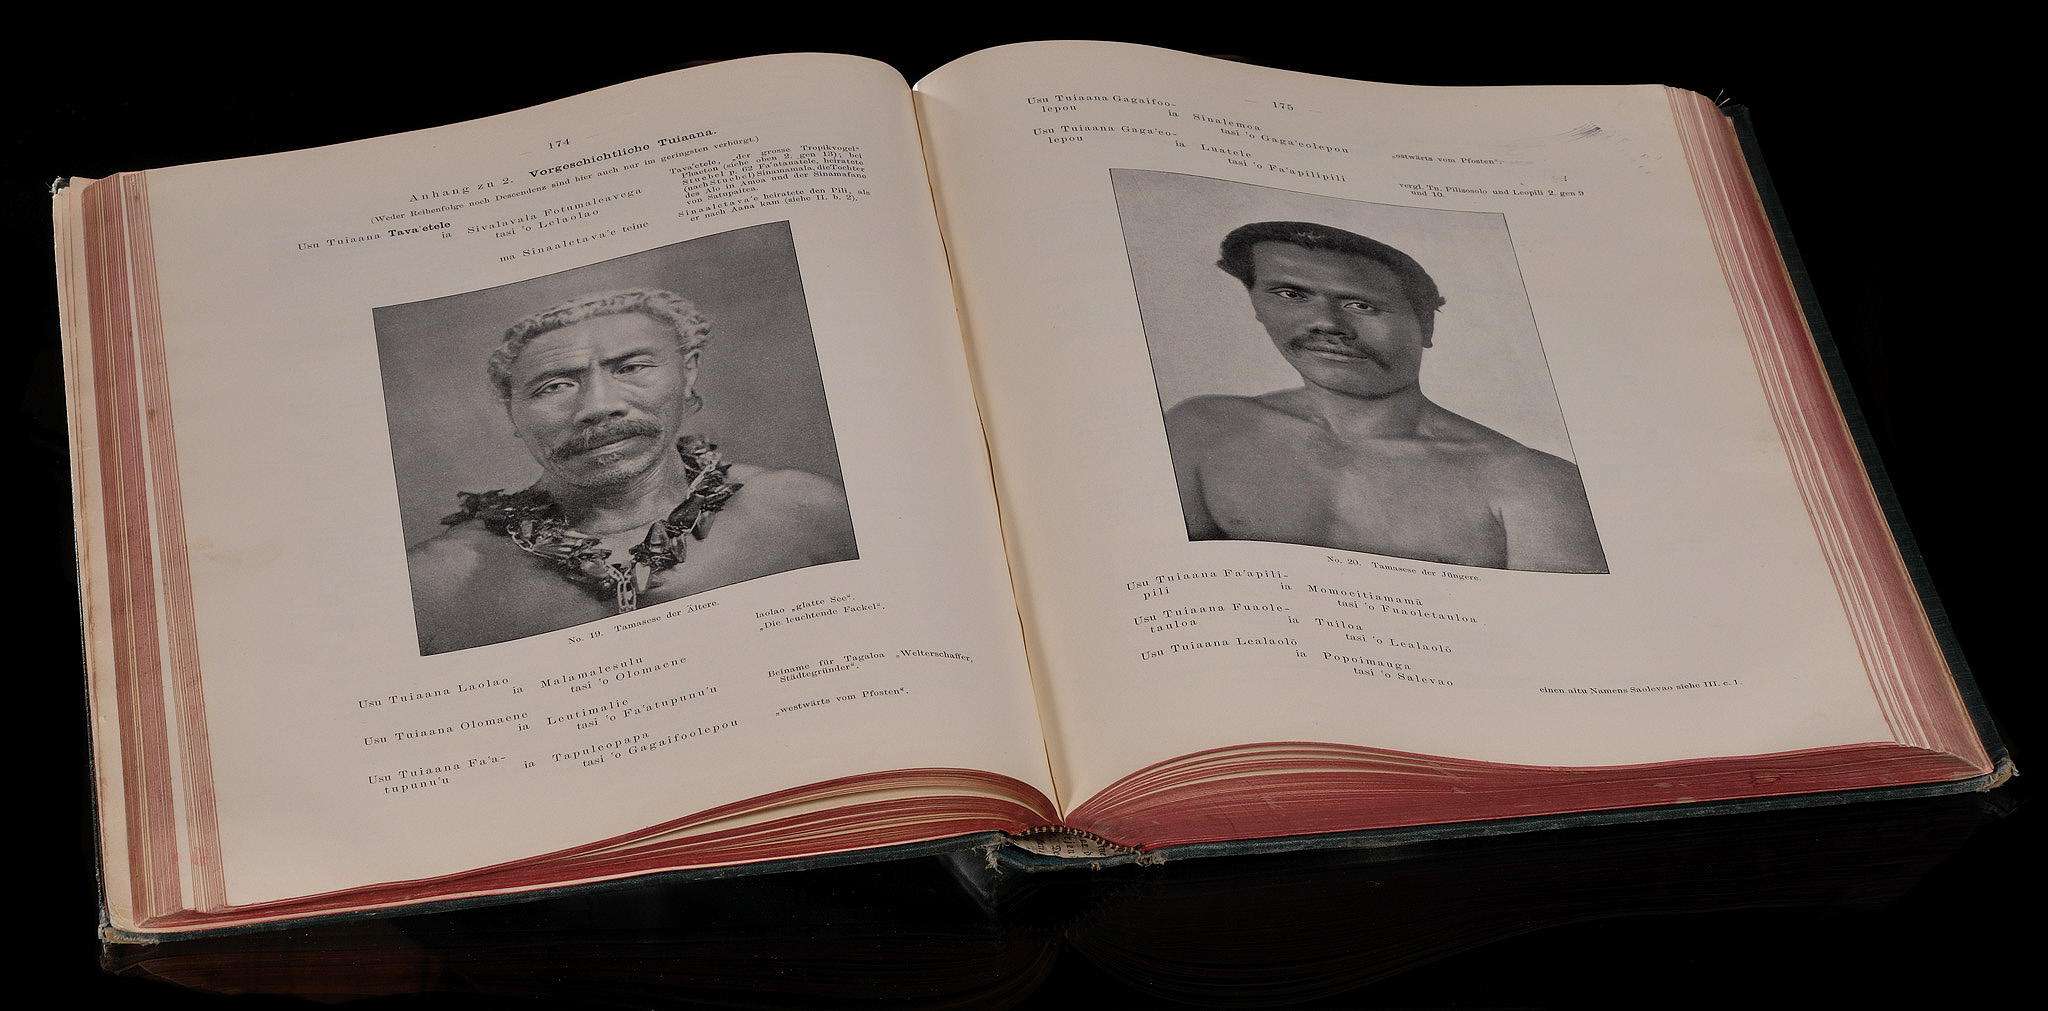 174
Anhang zu 2. Vorgeschichtliche Tuiaana.
(Weder Reihenfolge noch Descendenz sind hier auch nur im geringsten verbürgt.)
Usu Tuiaana Tava'etele
ia Sivalavala Fotumaleavega
tasi 'o Lelaolao
ma Sinaaletava'e teine
Tava'etele, „der grosse Tropikvogel-
Phaeton (siehe oben 2. gen 13); bei
Stuebel p. 62 Fa'atauatele, heiratete
(nach Stuebel) Sinamamala, die Tochter
des Alo in Amoa und der Sinamafane
von Satupaitea.
Sinaaletava'e heiratete den Pili, als
er nach Aana kam (siehe II. b. 2).
No. 19. Tamasese der Ältere.
laolao „glatte See“.
„Die leuchtende Fackel“.
Usu Tuiaana Laolao
ia Malamalesulu
tasi 'o Olomaene
Usu Tuiaana Olomaene
ia Leutimalie
tasi 'o Fa'atupunu'u
Beiname für Tagaloa „Welterschaffer,
Städtegründer“.
Usu Tuiaana Fa'a-
tupunu'u
ia Tapuleopapa
tasi 'o Gagaifoolepou
„westwärts vom Pfosten“.
175
Usu Tuiaana Gagaifoo-
lepou
ia Sinalemoa
tasi 'o Gaga'eolepou
„ostwärts vom Pfosten“.
Usu Tuiaana Gaga'eo-
lepou
ia Luatele
tasi 'o Fa'apilipili
vergl. Tu. Pilisosolo und Leopili 2. gen 9
und 10.
No. 20. Tamasese der Jüngere.
Usu Tuiaana Fa'apili-
pili
ia Momoeitiamamā
tasi 'o Fuaoletauloa
Usu Tuiaana Fuaole-
tauloa
ia Tuiloa
tasi 'o Lealaolō
Usu Tuiaana Lealaolō
ia Popoimauga
tasi 'o Salevao
einen aitu Namens Saolevao siehe III. c. 1.